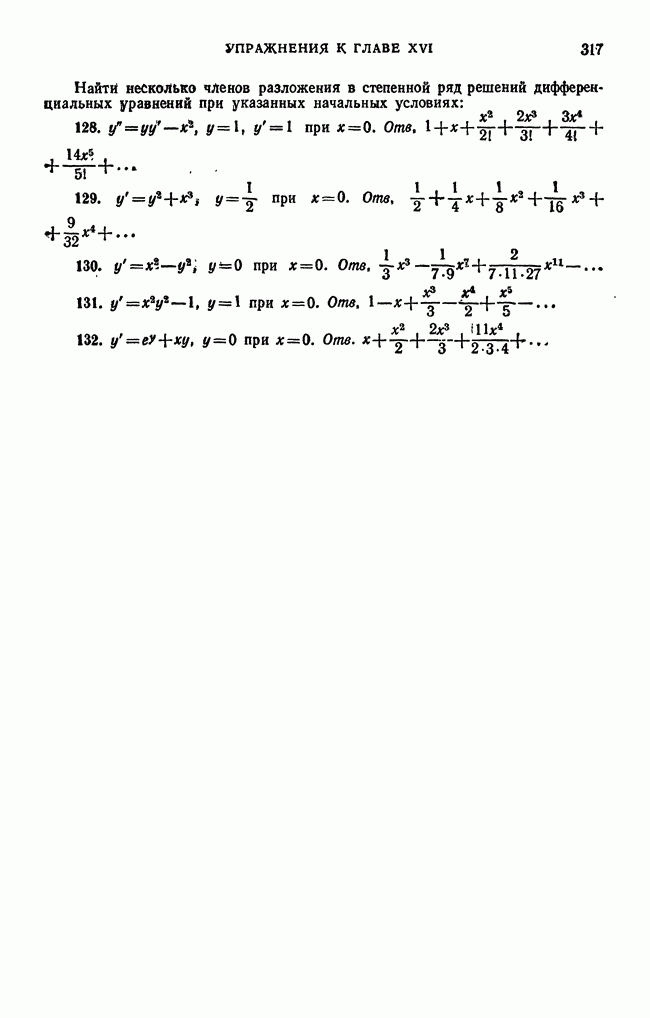 УПРАЖНЕНИЯ К ГЛАВЕ XVI 317
Найти несколько членов разложения в степенной ряд решений дифферен-
циальных уравнений при указанных начальных условиях:
128. y″=yy′—x², y=1, y′=1 при x=0. Отв. 1+x+x²/2!+2x³/3!+3x⁴/4!+
+14x⁵/5!+...
129. y′=y²+x³, y=1/2 при x=0. Отв. 1/2+1/4 x+1/8 x²+1/16 x³+
+9/32 x⁴+...
130. y′=x²—y², y=0 при x=0. Отв. 1/3 x³—1/(7·9) x⁷+2/(7·11·27) x¹¹—...
131. y′=x²y²—1, y=1 при x=0. Отв. 1—x+x³/3—x⁴/2+x⁵/5—...
132. y′=eʸ+xy, y=0 при x=0. Отв. x+x²/2+2x³/3+11x⁴/(2·3·4)+...